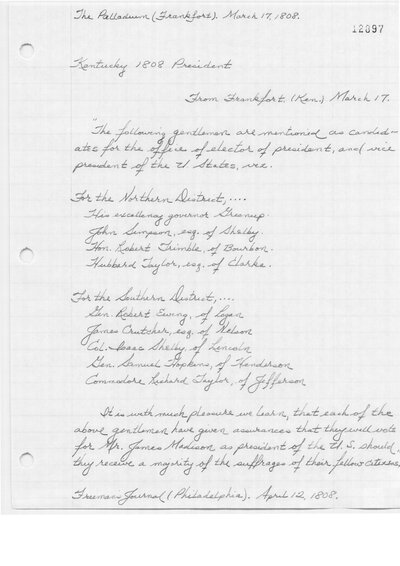 The Palladium (Frankfort). March 17, 1808.
12897
Kentucky 1808 President
From Frankfort, (Ken.) March 17.
"The following gentlemen are mentioned as candid-
ates for the office of elector of president, and vice
president of the U States, viz.
For the Northern District,....
His excellency governor Greenup.
John Simpson, esq. of Shelby.
Hon. Robert Trimble, of Bourbon.
Hubbard Taylor, esq. of Clarke.
For the Southern District,....
Gen Robert Ewing, of Logan
James Crutcher, esq. of Nelson
Col. Isaac Shelby, of Lincoln
Gen. Samuel Hopkins, of Henderson
Commodore Richard Taylor, of Jefferson
It is with much pleasure we learn, that each of the
above gentlemen have given assurances that they will vote
for Mr. James Madison as president of the U. S. should
they receive a majority of the suffrages of their fellow citizens.
Freemans Journal (Philadelphia). April 12, 1808.